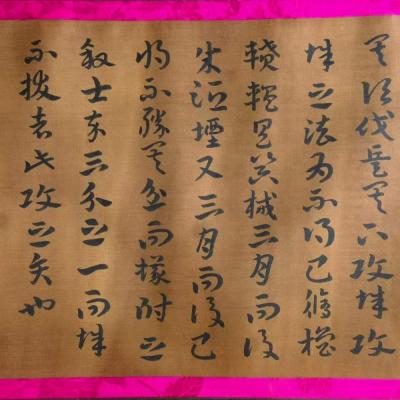 其次伐兵其下攻城攻
城之法為不得已修櫓
轒轀具器械三月而後
成距堙又三月而後已
將不勝其忿而蟻附之
殺士卒三分之一而城
不拔者此攻之災也